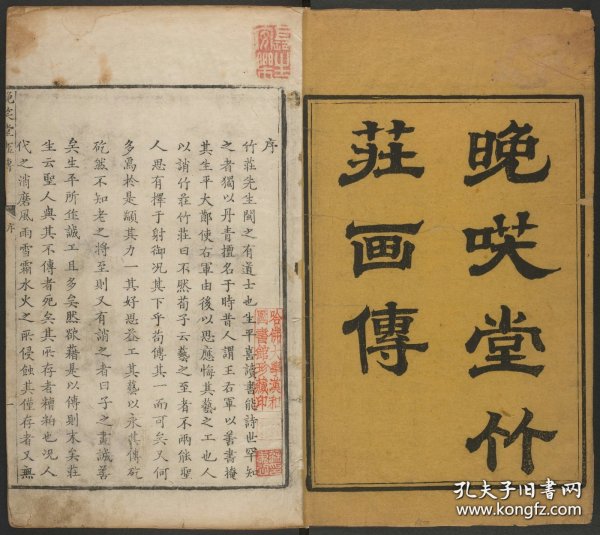 晚唉堂竹
莊画傳
序
竹莊先生閩之有道士也生平喜讀書能詩世罕知
之者獨以丹青擅名于時昔人謂王右軍以善書掩
其生平大鄭使右軍由後以思應悔其藝之工也人
以誚竹莊竹莊曰不然荀子云藝之至者不兩能聖
人思有擇于射御况其下乎苟傳其一而可矣又何
多焉於是顓其力一其好思益工其藝以永其傳矻
矻然不知老之將至則又有誚之者曰子之畫誠善
矣生平所作誠工且多矣然欲藉是以傳則末矣莊
生云聖人與其不傳者宛矣其所存者糟粕也况人
代之消磨風雨雪霜水火之所侵蝕其僅存者又無
晚笑堂画傳
序
一
哈佛大學漢和
圖書館珍藏印
孔夫子旧書网
www.kongfz.com